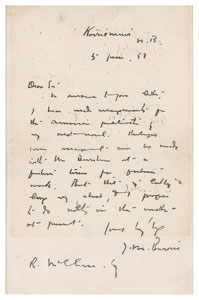 Kirriemuir
N.B.
5 June, 93
Dear Sir
In answer to your letter
I have made arrangements for
the American publication of
my next work. Perhaps
some arrangement can be made
with the
future time for
work. But this is
long way ahead, & I propose
to do nothing in the matter
at present.
Yours truly
J. M. Barrie
R. McClure